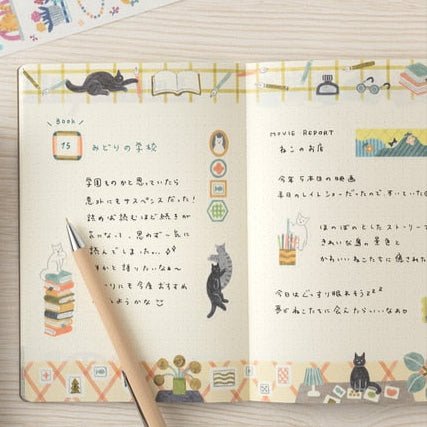 Book
15
みどりの学校
学園ものかと思っていたら
意外にもサスペンスだった!
読めば読むほど続きが
気になって、思わず一気に
読んでしまった…
かと語りたいなぁ〜
りにも今度おすすめ
ようかな
MOVIE REPORT
ねこのお店
今年5本目の映画
本日のレイトショーだったので、すいていた
ほのぼのとしたストーリー
きれいな島の景色と
かわいいねこたちに癒された
今日はぐっすり眠れそうzzz
夢でねこたちに会えたらいいなぁ